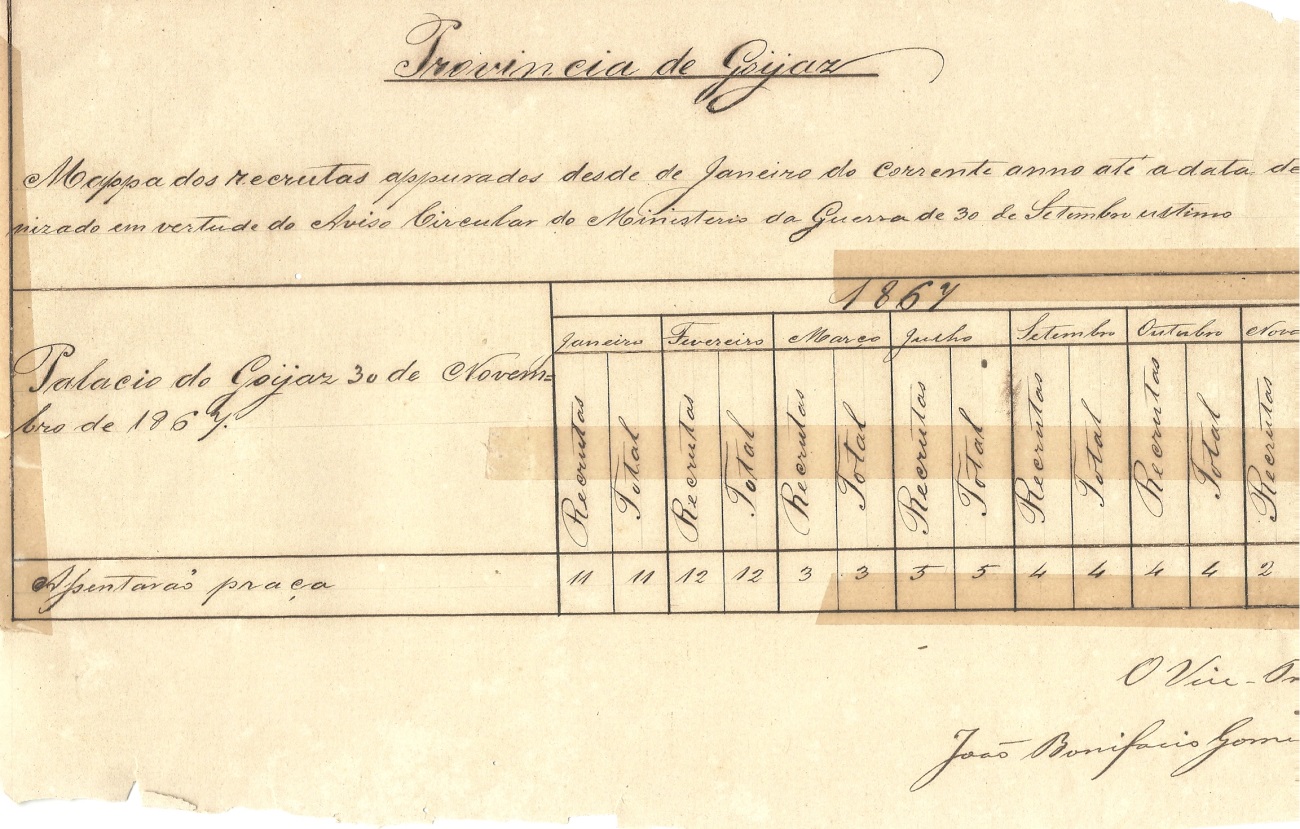 Provincia de Goijaz
Mappa dos recrutas appurados desde de Janeiro do corrente anno até a data de
nizado em vertude do Aviso Circular do Ministerio da Guerra de 30 de Setembro ultimo
1867
Janeiro Fevereiro Março Julho Setembro Outubro Nove
Palacio do Goijaz 30 de Novem=
bro de 1867.
Recrutas Total Recrutas Total Recrutas Total Recrutas Total Recrutas Total Recrutas Total Recrutas
Assentarão praça 11 11 12 12 3 3 5 5 4 4 4 4 2
O Vice-Pr
João Bonifacio Gome